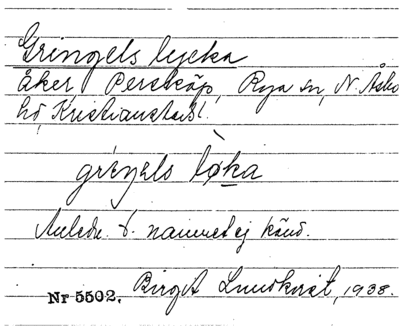 Gringels lycka
Åker, Perstköp, Rya sn, N. Åsbo
hd, Kristianstads l.
gréŋəls lø̀ka
Anledn. t. namnet ej känd.
Nr 5502. Birgit Lundkvist, 1938.